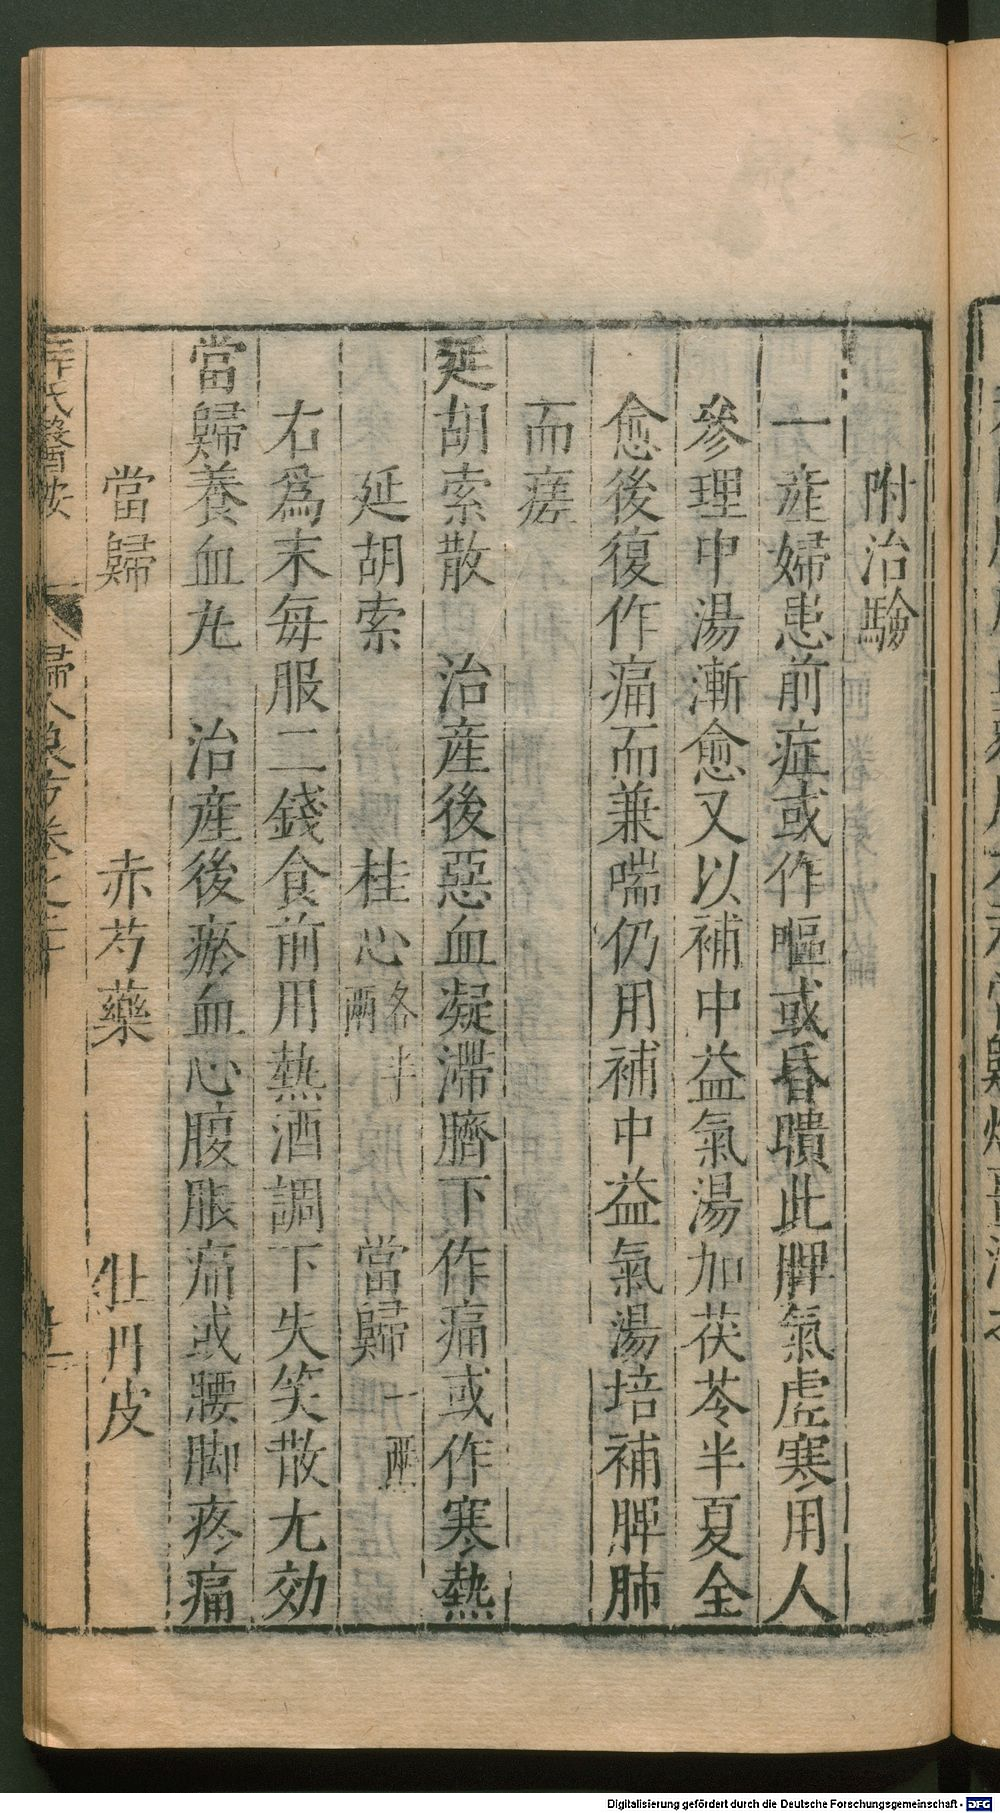 附治驗
一產婦患前症或作嘔或昏聵此脾氣虛寒用人
參理中湯漸愈又以補中益氣湯加茯苓半夏全
愈後復作痛而兼喘仍用補中益氣湯培補脾肺
而瘥
延胡索散　治產後惡血凝滯臍下作痛或作寒熱
延胡索　桂心各半兩　當歸一兩
右爲末每服二錢食前用熱酒調下失笑散尤効
當歸養血丸　治產後瘀血心腹脹痛或腰脚疼痛
當歸　赤芍藥　牡丹皮
薛氏醫按　婦人良方卷之二十
Digitalisierung gefördert durch die Deutsche Forschungsgemeinschaft - DFG